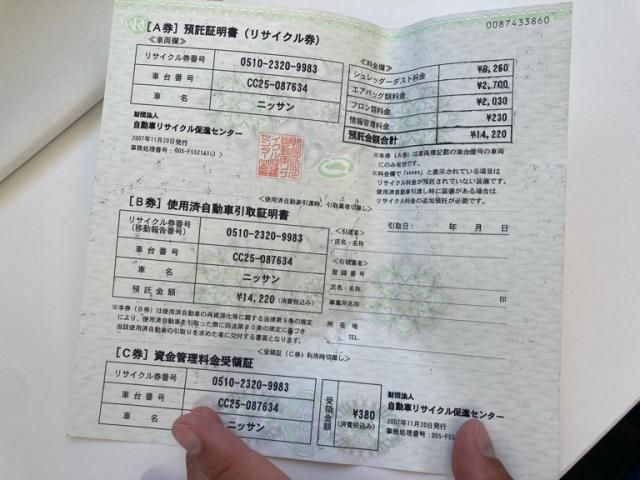 0087433860
[A券] 預託証明書(リサイクル券)
≪車両欄≫
リサイクル券番号 0510-2320-9983
車台番号 CC25-087634
車名 ニッサン
≪料金欄≫
シュレッダーダスト料金 ¥9,260
エアバッグ類料金 ¥2,700
フロン類料金 ¥2,030
情報管理料金 ¥230
預託金額合計 ¥14,220
財団法人
自動車リサイクル促進センター
2007年11月20日発行
事務処理番号:005-F5521A1( )
※本券(A券)は車両欄記載の車台番号の車両
にのみ有効です。
※料金欄で「*****」と表示されている項目は
リサイクル料金が預託されていない装備です。
使用済自動車引渡し時に装備がある場合は
リサイクル料金の追加預託が必要です。
[B券] 使用済自動車引取証明書
リサイクル券番号
(移動報告番号) 0510-2320-9983
車台番号 CC25-087634
車名 ニッサン
預託金額 ¥14,220(消費税込み)
引取日: 年 月 日
<引渡者>
氏名・名称
<引取業者>
登録番号
氏名・名称 印
事業所名称
所在地
TEL
※本券(B券)は使用済自動車の再資源化等に関する法律第9条の規定
により、使用済自動車を引取った際に同法第80条の規定に基づき
当該使用済自動車の引取りを求めた者に交付する書面となります。
[C券] 資金管理料金受領証
<受領証(C券)利用時切離し>
リサイクル券番号 0510-2320-9983
車台番号 CC25-087634
車名 ニッサン
受領金額 ¥380
(消費税込み)
財団法人
自動車リサイクル促進センター
2007年11月20日発行
事務処理番号:005-F55